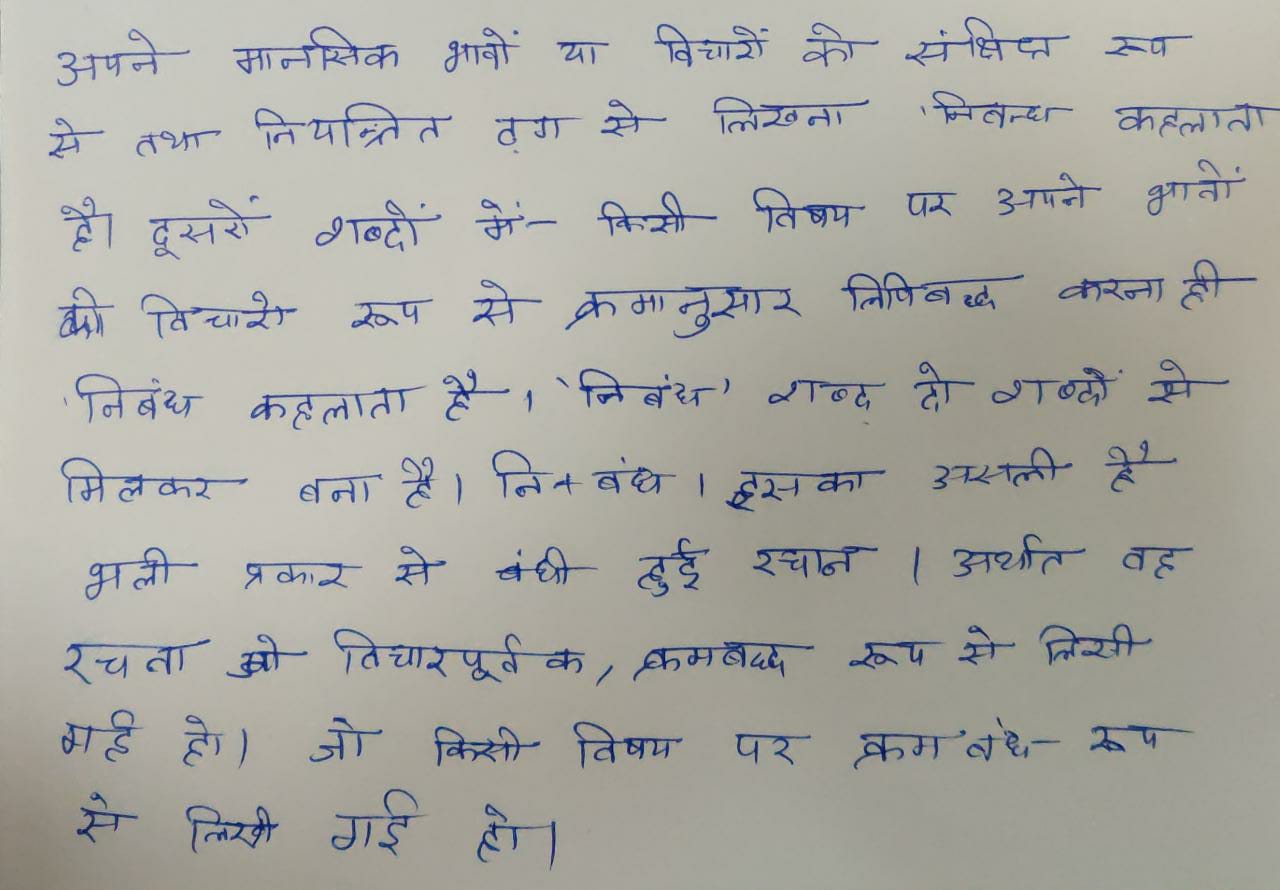 अपने मानसिक भावों या विचारों को संक्षिप्त रूप
से तथा नियन्त्रित ढ़ग से लिखना 'निबन्ध कहलाता
है। दूसरों शब्दों में- किसी विषय पर अपने भातों
को विचारो रूप से क्रमानुसार लिपिबद्ध करना ही
'निबंध कहलाता है, 'निबंध' शब्द दो शब्दों से
मिलकर बना है। नि+बंध। इसका असली है
भली प्रकार से बंधी हुई रचान। अर्थात वह
रचता जो विचारपूर्तक, क्रमबद्ध रूप से लिखी
गई हो। जो किसी विषय पर क्रम बंध- रूप
से लिखी गई हो।